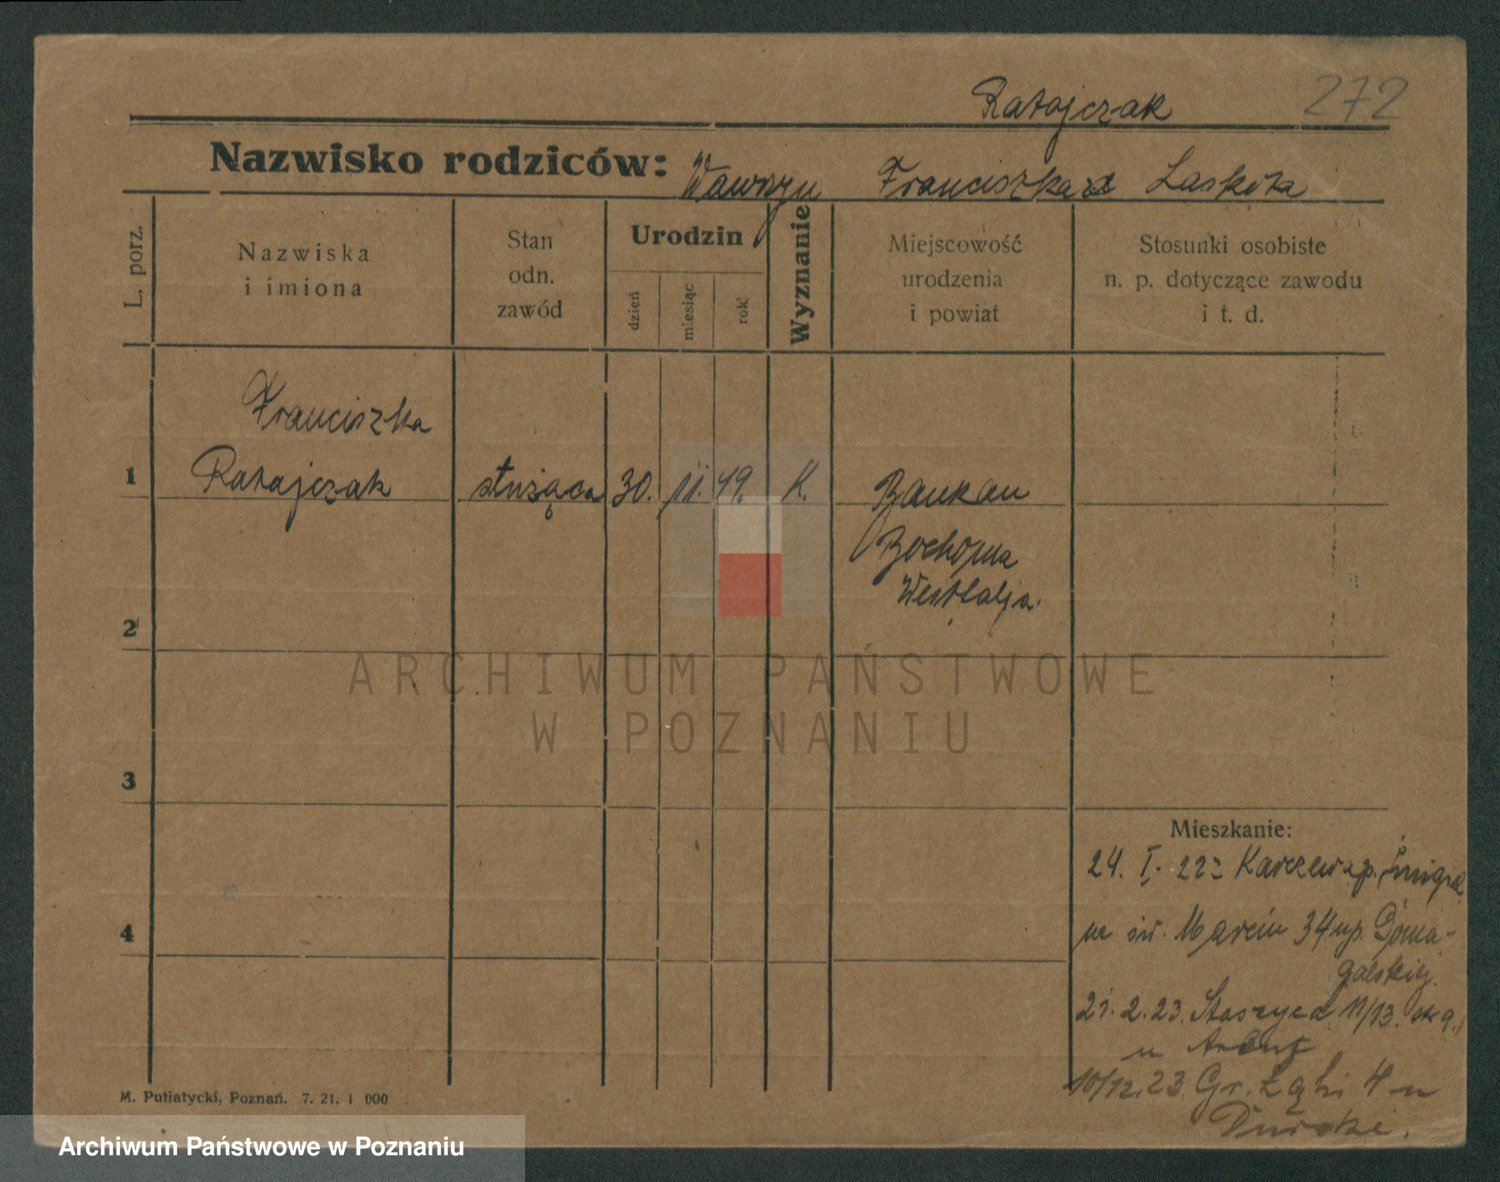 Ratajczak 272
Nazwisko rodziców: Wawrzyn Franciszka z Laskota
L. porz.
Nazwiska
i imiona
Stan
odn.
zawód
Urodzin
dzień
miesiąc
rok
Wyznanie
Miejscowość
urodzenia
i powiat
Stosunki osobiste
n. p. dotyczące zawodu
i t. d.
Franciszka
1 Ratajczak służąca 30. 11. K. Baukau
Westfalja.
2
3
4
ARCHIWUM PAŃSTWOWE
W POZNANIU
Mieszkanie:
24. I. 22 z Karczewa p. Śmigiel
na św. Marcin 34 u p. Doma-
galskiej.
21. 2. 23. Staszyca 11/13.
u
10/12.23 Gr. Łąki 4 u
M. Putiatycki, Poznań. 7. 21. 1 000
Archiwum Państwowe w Poznaniu